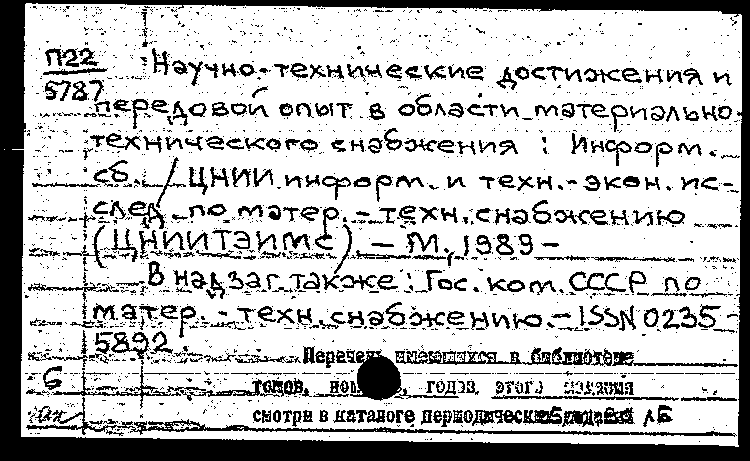 П22
5787
Научно-технические достижения и
передовой опыт в области материально-
технического снабжения : Информ.
сб. / ЦНИИ информ. и техн.-экон. ис-
след. по матер.-техн. снабжению
(ЦНИИТЭИМС). - М., 1989 -
В надзаг. также: Гос. ком. СССР по
матер.-техн. снабжению. - ISSN 0235-
5892.
Перечень имеющихся в библиотеке
томов, годов этого издания
смотри в каталоге периодических
Б